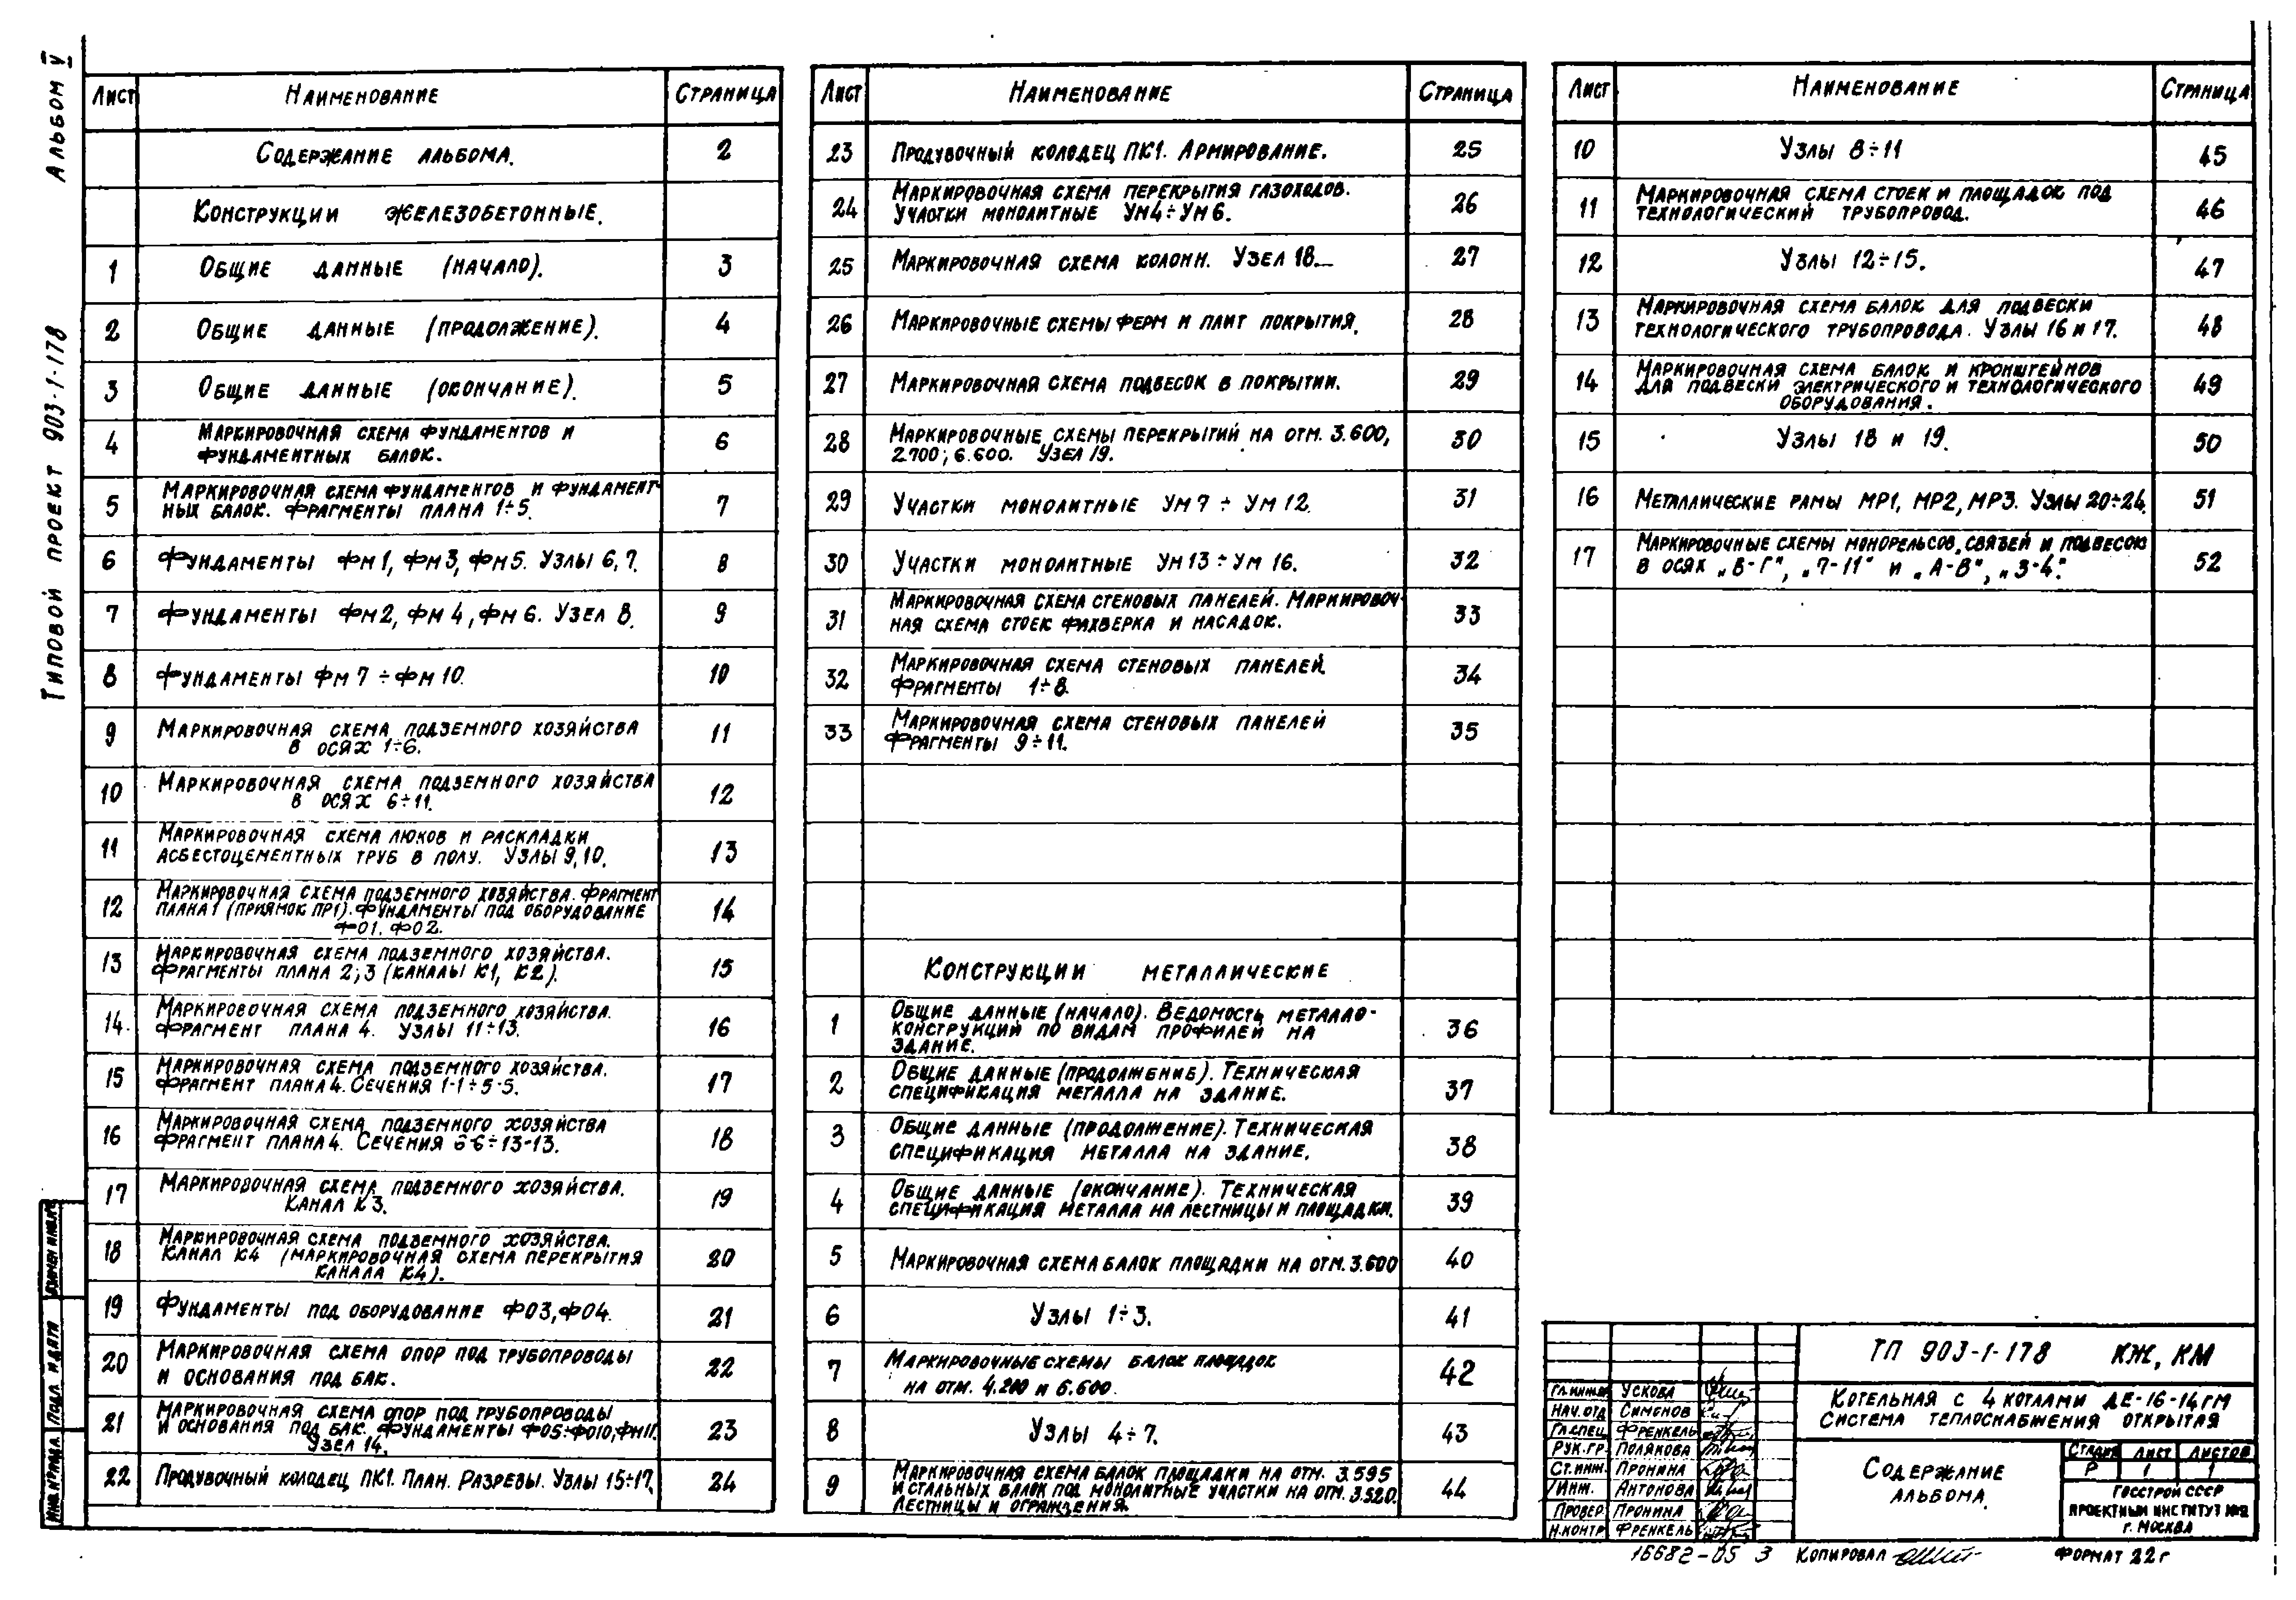 Альбом V
Типовой проект 903-1-178
Лист Наименование Страница
Содержание альбома. 2
Конструкции железобетонные.
1 Общие данные (начало). 3
2 Общие данные (продолжение). 4
3 Общие данные (окончание). 5
4 Маркировочная схема фундаментов и 6
фундаментных балок.
5 Маркировочная схема фундаментов и фундамент- 7
ных балок. Фрагменты плана 1÷5.
6 Фундаменты Фм1, Фм3, Фм5. Узлы 6, 7. 8
7 Фундаменты Фм2, Фм4, Фм6. Узел 8. 9
8 Фундаменты Фм7 ÷ Фм10. 10
9 Маркировочная схема подземного хозяйства 11
в осях 1÷6.
10 Маркировочная схема подземного хозяйства 12
в осях 6÷11.
11 Маркировочная схема люков и раскладки 13
асбестоцементных труб в полу. Узлы 9, 10.
12 Маркировочная схема подземного хозяйства. Фрагмент 14
плана 1 (приямок ПР1). Фундаменты под оборудование
Ф01. Ф02.
13 Маркировочная схема подземного хозяйства. 15
Фрагменты плана 2; 3 (каналы К1, К2).
14 Маркировочная схема подземного хозяйства. 16
Фрагмент плана 4. Узлы 11÷13.
15 Маркировочная схема подземного хозяйства. 17
Фрагмент плана 4. Сечения 1-1÷5-5.
16 Маркировочная схема подземного хозяйства 18
Фрагмент плана 4. Сечения 6-6÷13-13.
17 Маркировочная схема подземного хозяйства. 19
Канал К3.
18 Маркировочная схема подземного хозяйства. 20
Канал К4 (маркировочная схема перекрытия
канала К4).
19 Фундаменты под оборудование Ф03, Ф04. 21
20 Маркировочная схема опор под трубопроводы 22
и основания под бак.
21 Маркировочная схема опор под трубопроводы 23
и основания под бак. Фундаменты Ф05÷Ф010, Фм11.
Узел 14.
22 Продувочный колодец ПК1. План. Разрезы. Узлы 15÷17. 24
Лист Наименование Страница
23 Продувочный колодец ПК1. Армирование. 25
24 Маркировочная схема перекрытия газоходов. 26
Участки монолитные Ум4÷Ум6.
25 Маркировочная схема колонн. Узел 18. 27
26 Маркировочные схемы ферм и плит покрытия. 28
27 Маркировочная схема подвесок в покрытии. 29
28 Маркировочные схемы перекрытий на отм. 3.600, 30
2.700; 6.600. Узел 19.
29 Участки монолитные Ум7 ÷ Ум12. 31
30 Участки монолитные Ум13 ÷ Ум16. 32
31 Маркировочная схема стеновых панелей. Маркировоч- 33
ная схема стоек фахверка и насадок.
32 Маркировочная схема стеновых панелей. 34
Фрагменты 1÷8.
33 Маркировочная схема стеновых панелей 35
Фрагменты 9÷11.
Конструкции металлические
1 Общие данные (начало). Ведомость металло- 36
конструкций по видам профилей на
здание.
2 Общие данные (продолжение). Техническая 37
спецификация металла на здание.
3 Общие данные (продолжение). Техническая 38
спецификация металла на здание.
4 Общие данные (окончание). Техническая 39
спецификация металла на лестницы и площадки.
5 Маркировочная схема балок площадки на отм. 3.600 40
6 Узлы 1÷3. 41
7 Маркировочные схемы балок площадок 42
на отм. 4.200 и 6.600.
8 Узлы 4÷7. 43
9 Маркировочная схема балок площадки на отм. 3.595 44
и стальных балок под монолитные участки на отм. 3.520.
Лестницы и ограждения.
Лист Наименование Страница
10 Узлы 8÷11 45
11 Маркировочная схема стоек и площадок под 46
технологический трубопровод.
12 Узлы 12÷15. 47
13 Маркировочная схема балок для подвески 48
технологического трубопровода. Узлы 16 и 17.
14 Маркировочная схема балок и кронштейнов 49
для подвески электрического и технологического
оборудования.
15 Узлы 18 и 19. 50
16 Металлические рамы МР1, МР2, МР3. Узлы 20÷24. 51
17 Маркировочные схемы монорельсов, связей и подвесок 52
в осях „В-Г", „7-11" и „А-В", „3-4".
ТП 903-1-178 КЖ, КМ
Гл.инж.пр Ускова
Нач.отд Симонов
Гл.спец Френкель
Рук.гр. Полякова
Ст.инж. Пронина
Инж. Антонова
Провер Пронина
Н.контр Френкель
Котельная с 4 котлами ДЕ-16-14ГМ
Система теплоснабжения открытая
Содержание
альбома.
Стадия Лист Листов
Р 1 1
Госстрой СССР
Проектный институт №2
г. Москва
16682-05 3 Копировал
Формат 22г
Взамен инв.№
Подп. и дата
Инв.№ подл.